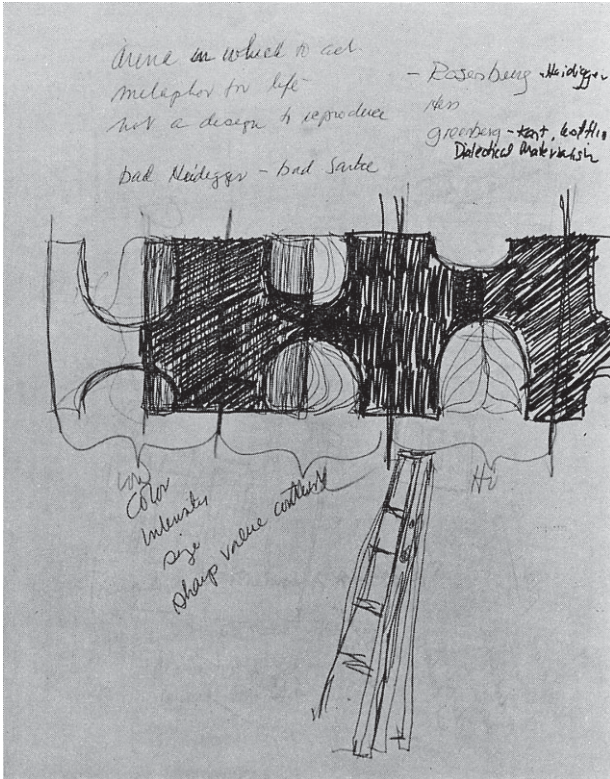 arena in which to act
metaphor for life
not a design to reproduce
bad Heidegger - bad Sartre
- Rosenburg - Heidigger
Hess
greenberg - Kant, Wolfflin
Dialectical Materialism
low
Color
Intensity
size
sharp value contrast
Hi